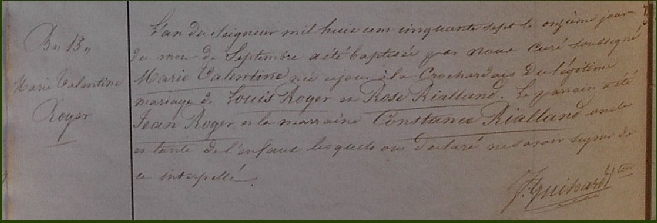 Bn 13e
Marie Valentine
Roger
L'an du Seigneur mil huit cent cinquante sept le onzième jour
du mois de Septembre a été baptisée par nous curé soussigné
Marie Valentine née ce jour à la Crochardais du légitime
mariage de Louis Roger et Rose Rialland. Le parrain a été
Jean Roger et la marraine Constance Rialland oncle
et tante de l'enfant lesquels ont déclaré ne savoir signer de
ce interpellé.
J. Guihard